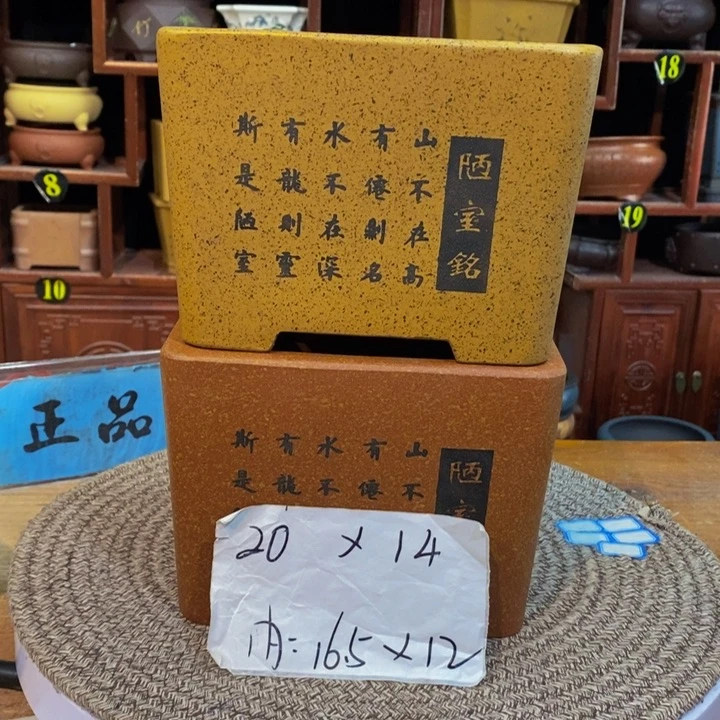 陋室銘
山不在高
有僊則名
水不在深
有龍則靈
斯是陋室
陋室
山不
有僊
水不
有龍
斯是
20 × 14
内:16.5×12
正品
8
10
18
19
竹